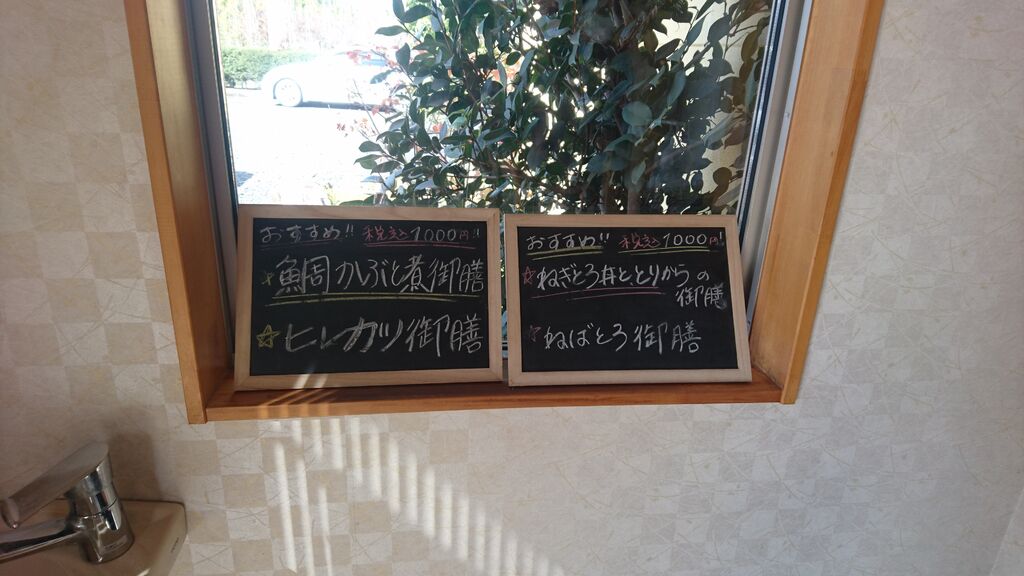 おすすめ!! 税込1000円!!
☆鯛のかぶと煮御膳
☆ヒレカツ御膳
おすすめ!! 税込1000円!!
☆ねぎとろ丼ととりからの
御膳
☆ねばとろ御膳